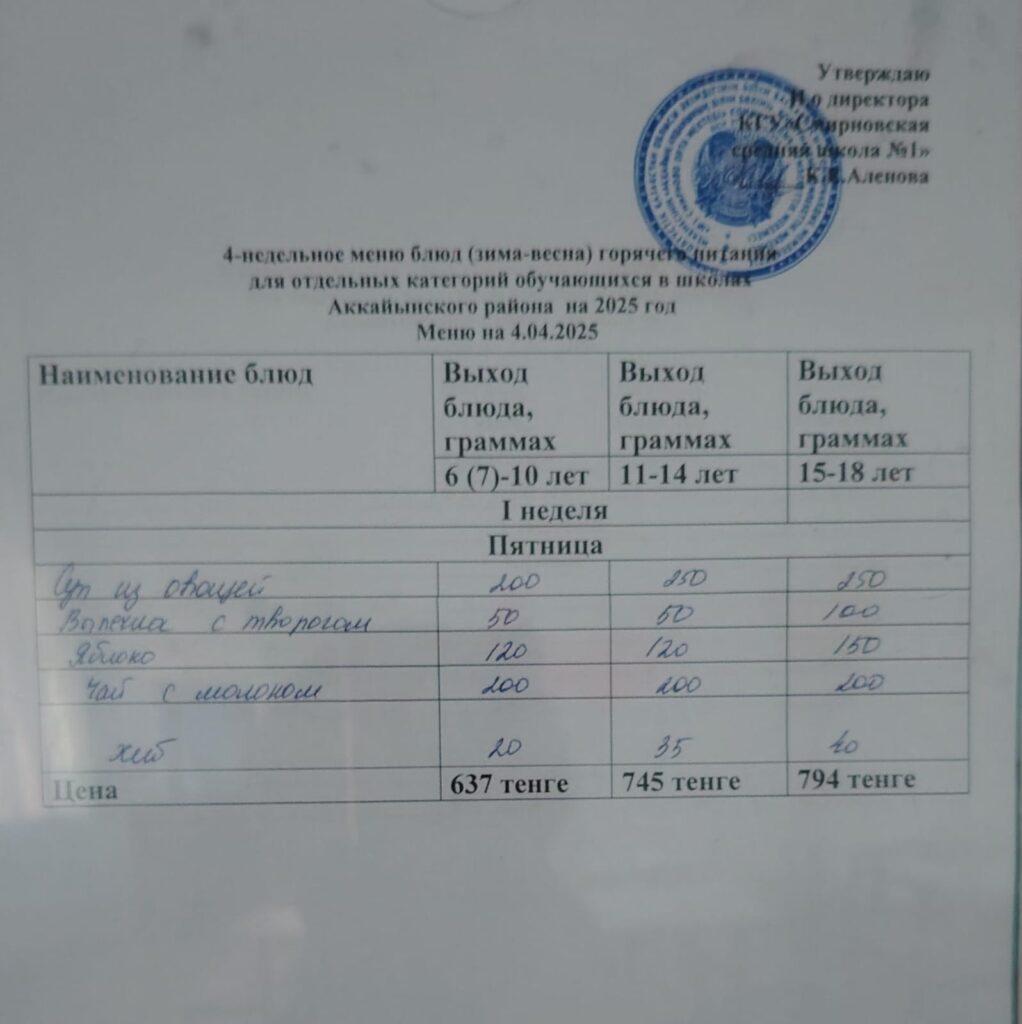 Утверждаю
И.о директора
КГУ«Смирновская
средняя школа №1»
Аленова
4-недельное меню блюд (зима-весна) горячего питания
для отдельных категорий обучающихся в школах
Аккайынского района на 2025 год
Меню на 4.04.2025
Наименование блюд Выход блюда, граммах Выход блюда, граммах Выход блюда, граммах
6 (7)-10 лет 11-14 лет 15-18 лет
I неделя
Пятница
Суп из овощей 200 250 250
Выпечка с творогом 50 50 100
Яблоко 120 120 150
Чай с молоком 200 200 200
хлеб 20 35 40
Цена 637 тенге 745 тенге 794 тенге